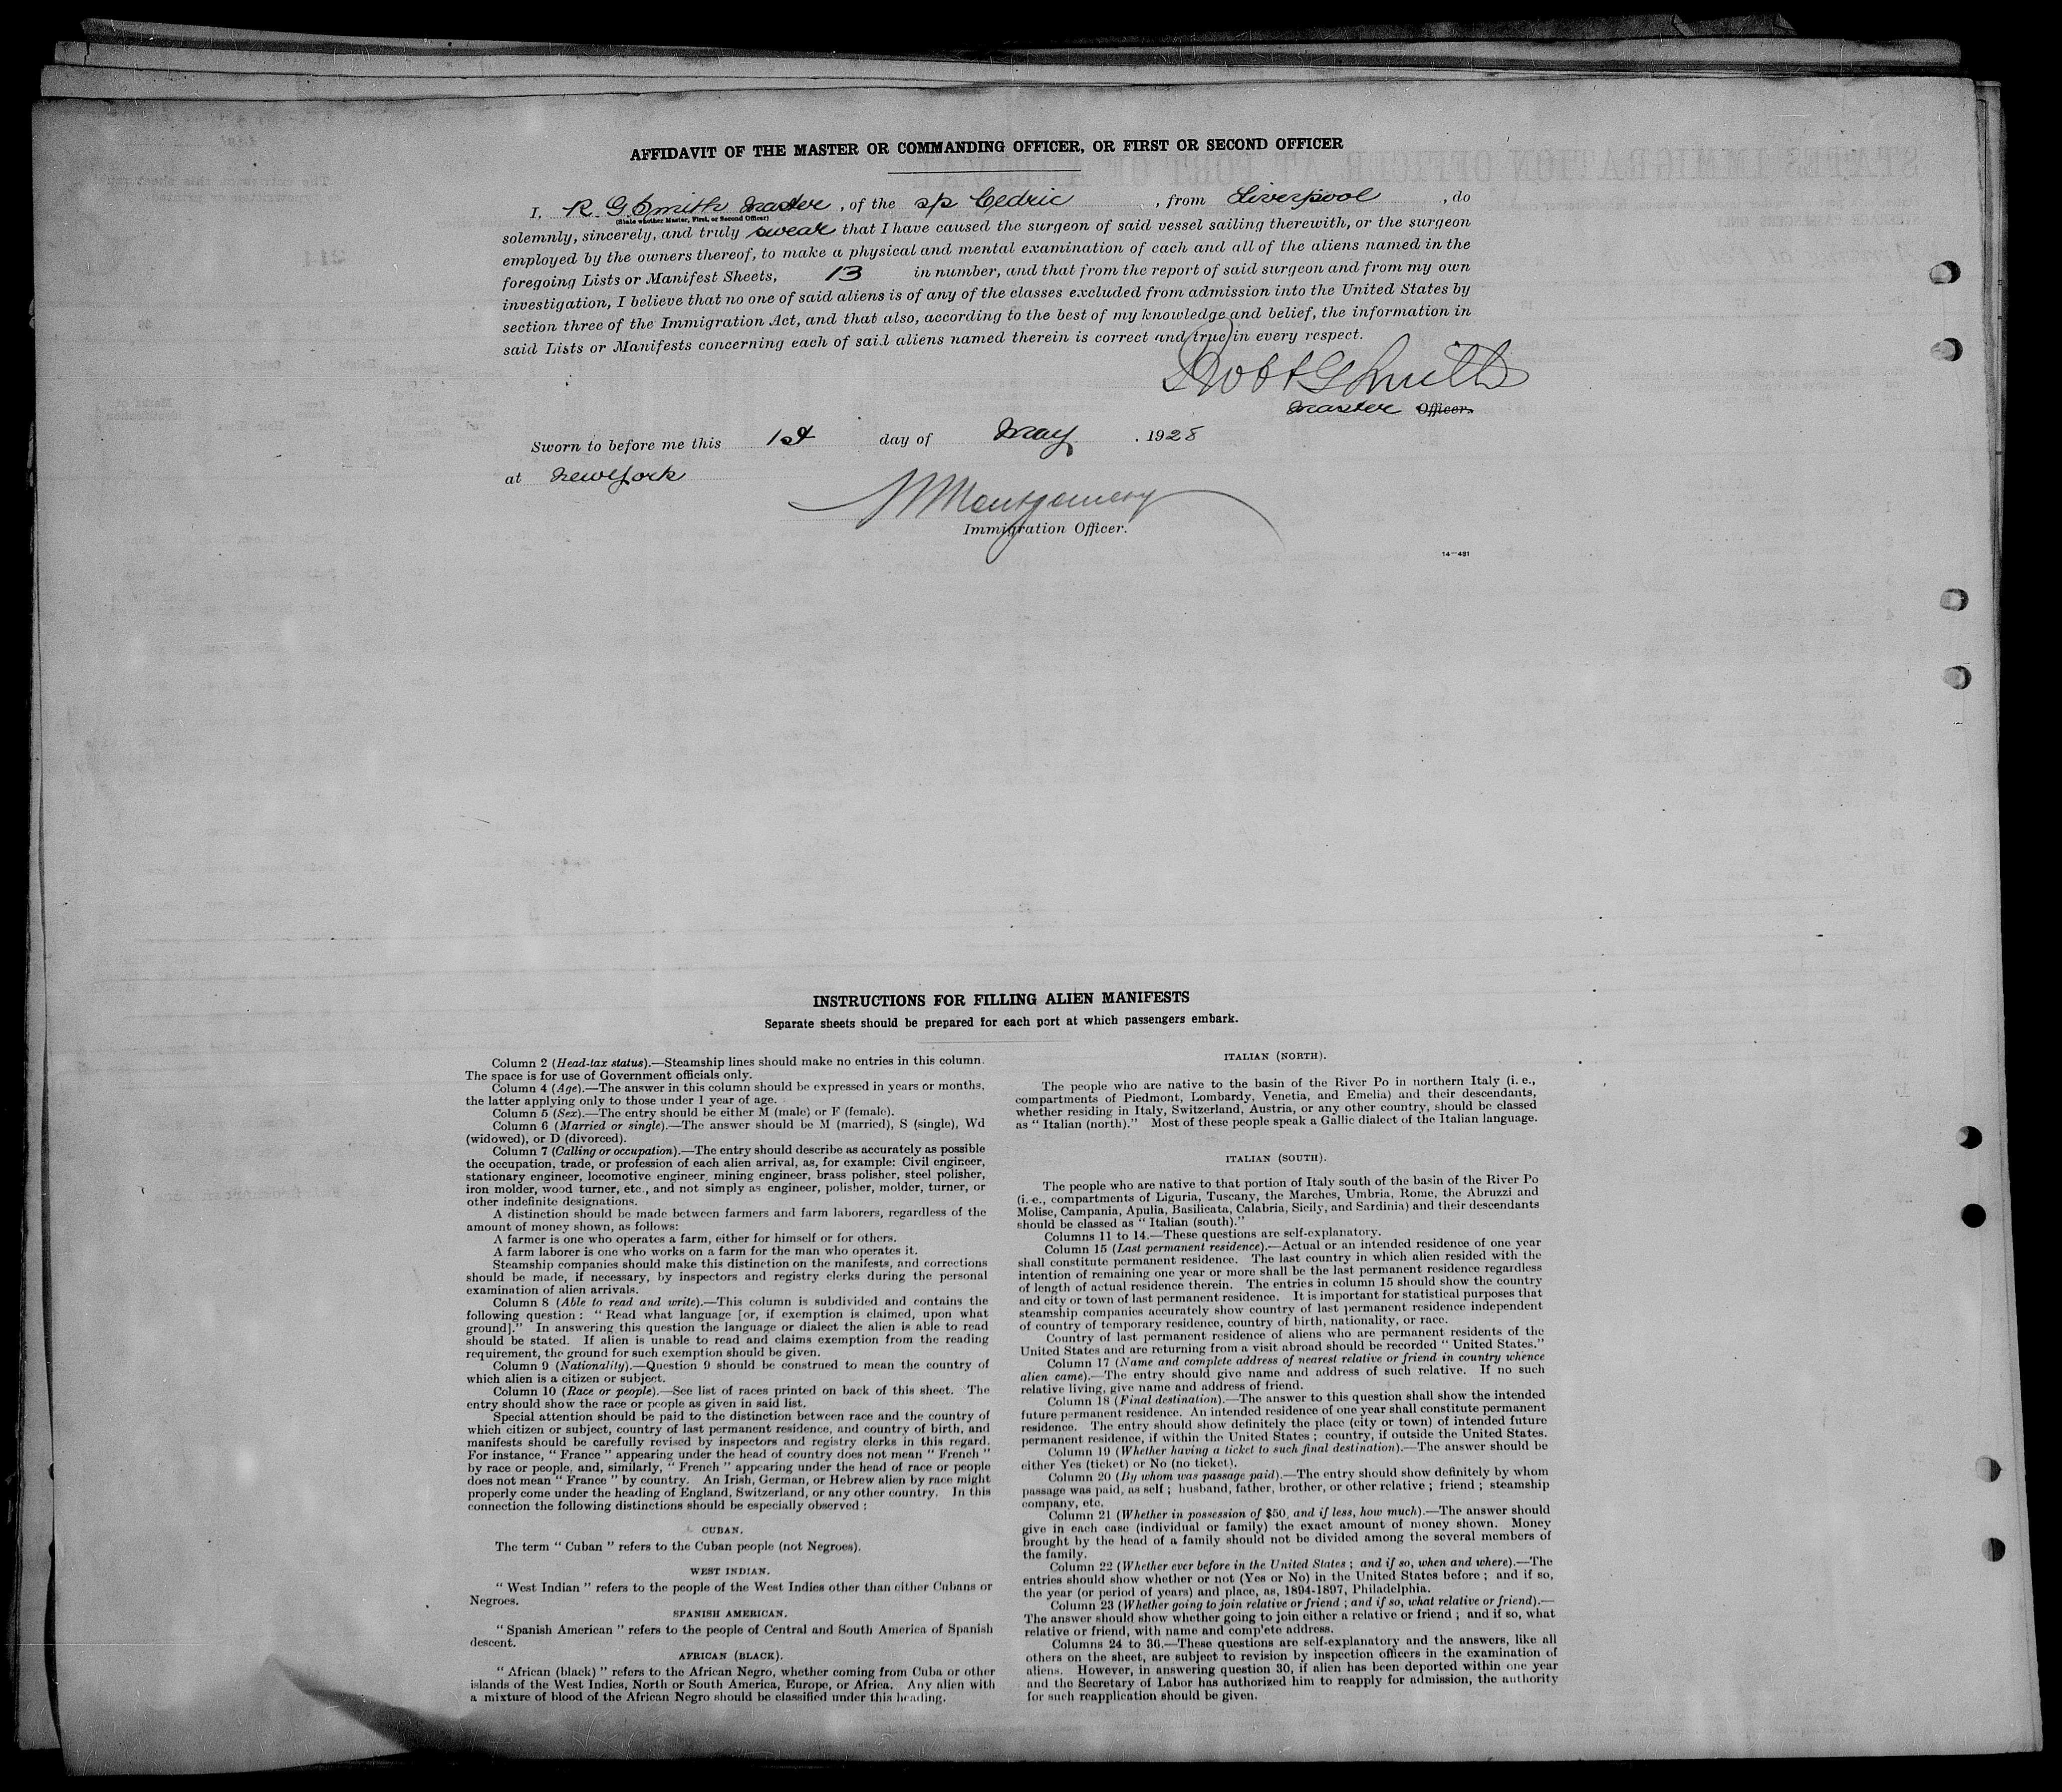 AFFIDAVIT OF THE MASTER OR COMMANDING OFFICER, OR FIRST OR SECOND OFFICER
I, R. G. Smith Master, of the s/s Cedric, from Liverpool, do
(State whether Master, First, or Second Officer)
solemnly, sincerely, and truly swear that I have caused the surgeon of said vessel sailing therewith, or the surgeon
employed by the owners thereof, to make a physical and mental examination of each and all of the aliens named in the
foregoing Lists or Manifest Sheets, 13 in number, and that from the report of said surgeon and from my own
investigation, I believe that no one of said aliens is of any of the classes excluded from admission into the United States by
section three of the Immigration Act, and that also, according to the best of my knowledge and belief, the information in
said Lists or Manifests concerning each of said aliens named therein is correct and true in every respect.
Robt G Smith
Master Officer.
Sworn to before me this 1st day of May, 1928
at New York
Montgomery
Immigration Officer.
14—481
INSTRUCTIONS FOR FILLING ALIEN MANIFESTS
Separate sheets should be prepared for each port at which passengers embark.
Column 2 (Head-tax status).—Steamship lines should make no entries in this column.
The space is for use of Government officials only.
Column 4 (Age).—The answer in this column should be expressed in years or months,
the latter applying only to those under 1 year of age.
Column 5 (Sex).—The entry should be either M (male) or F (female).
Column 6 (Married or single).—The answer should be M (married), S (single), Wd
(widowed), or D (divorced).
Column 7 (Calling or occupation).—The entry should describe as accurately as possible
the occupation, trade, or profession of each alien arrival, as, for example: Civil engineer,
stationary engineer, locomotive engineer, mining engineer, brass polisher, steel polisher,
iron molder, wood turner, etc., and not simply as engineer, polisher, molder, turner, or
other indefinite designations.
A distinction should be made between farmers and farm laborers, regardless of the
amount of money shown, as follows:
A farmer is one who operates a farm, either for himself or for others.
A farm laborer is one who works on a farm for the man who operates it.
Steamship companies should make this distinction on the manifests, and corrections
should be made, if necessary, by inspectors and registry clerks during the personal
examination of alien arrivals.
Column 8 (Able to read and write).—This column is subdivided and contains the
following question: "Read what language [or, if exemption is claimed, upon what
ground]." In answering this question the language or dialect the alien is able to read
should be stated. If alien is unable to read and claims exemption from the reading
requirement, the ground for such exemption should be given.
Column 9 (Nationality).—Question 9 should be construed to mean the country of
which alien is a citizen or subject.
Column 10 (Race or people).—See list of races printed on back of this sheet. The
entry should show the race or people as given in said list.
Special attention should be paid to the distinction between race and the country of
which citizen or subject, country of last permanent residence, and country of birth, and
manifests should be carefully revised by inspectors and registry clerks in this regard.
For instance, "France" appearing under the head of country does not mean "French"
by race or people, and, similarly, "French" appearing under the head of race or people
does not mean "France" by country. An Irish, German, or Hebrew alien by race might
properly come under the heading of England, Switzerland, or any other country. In this
connection the following distinctions should be especially observed:
CUBAN.
The term "Cuban" refers to the Cuban people (not Negroes).
WEST INDIAN.
"West Indian" refers to the people of the West Indies other than either Cubans or
Negroes.
SPANISH AMERICAN.
"Spanish American" refers to the people of Central and South America of Spanish
descent.
AFRICAN (BLACK).
"African (black)" refers to the African Negro, whether coming from Cuba or other
islands of the West Indies, North or South America, Europe, or Africa. Any alien with
a mixture of blood of the African Negro should be classified under this heading.
ITALIAN (NORTH).
The people who are native to the basin of the River Po in northern Italy (i. e.,
compartments of Piedmont, Lombardy, Venetia, and Emelia) and their descendants,
whether residing in Italy, Switzerland, Austria, or any other country, should be classed
as "Italian (north)." Most of these people speak a Gallic dialect of the Italian language.
ITALIAN (SOUTH).
The people who are native to that portion of Italy south of the basin of the River Po
(i. e., compartments of Liguria, Tuscany, the Marches, Umbria, Rome, the Abruzzi and
Molise, Campania, Apulia, Basilicata, Calabria, Sicily, and Sardinia) and their descendants
should be classed as "Italian (south)."
Columns 11 to 14.—These questions are self-explanatory.
Column 15 (Last permanent residence).—Actual or an intended residence of one year
shall constitute permanent residence. The last country in which alien resided with the
intention of remaining one year or more shall be the last permanent residence regardless
of length of actual residence therein. The entries in column 15 should show the country
and city or town of last permanent residence. It is important for statistical purposes that
steamship companies accurately show country of last permanent residence independent
of country of temporary residence, country of birth, nationality, or race.
Country of last permanent residence of aliens who are permanent residents of the
United States and are returning from a visit abroad should be recorded "United States."
Column 17 (Name and complete address of nearest relative or friend in country whence
alien came).—The entry should give name and address of such relative. If no such
relative living, give name and address of friend.
Column 18 (Final destination).—The answer to this question shall show the intended
future permanent residence. An intended residence of one year shall constitute permanent
residence. The entry should show definitely the place (city or town) of intended future
permanent residence, if within the United States; country, if outside the United States.
Column 19 (Whether having a ticket to such final destination).—The answer should be
either Yes (ticket) or No (no ticket).
Column 20 (By whom was passage paid).—The entry should show definitely by whom
passage was paid, as self; husband, father, brother, or other relative; friend; steamship
company, etc.
Column 21 (Whether in possession of $50, and if less, how much).—The answer should
give in each case (individual or family) the exact amount of money shown. Money
brought by the head of a family should not be divided among the several members of
the family.
Column 22 (Whether ever before in the United States; and if so, when and where).—The
entries should show whether or not (Yes or No) in the United States before; and if so,
the year (or period of years) and place, as, 1894-1897, Philadelphia.
Column 23 (Whether going to join relative or friend; and if so, what relative or friend).—
The answer should show whether going to join either a relative or friend; and if so, what
relative or friend, with name and complete address.
Columns 24 to 36.—These questions are self-explanatory and the answers, like all
others on the sheet, are subject to revision by inspection officers in the examination of
aliens. However, in answering question 30, if alien has been deported within one year
and the Secretary of Labor has authorized him to reapply for admission, the authority
for such reapplication should be given.